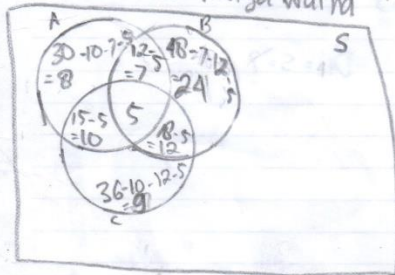 A
B
S
30-10-7-5
=8
12-5
=7
48-7-12-5
=24
15-5
=10
5
=12
36-10-12-5
=9
C